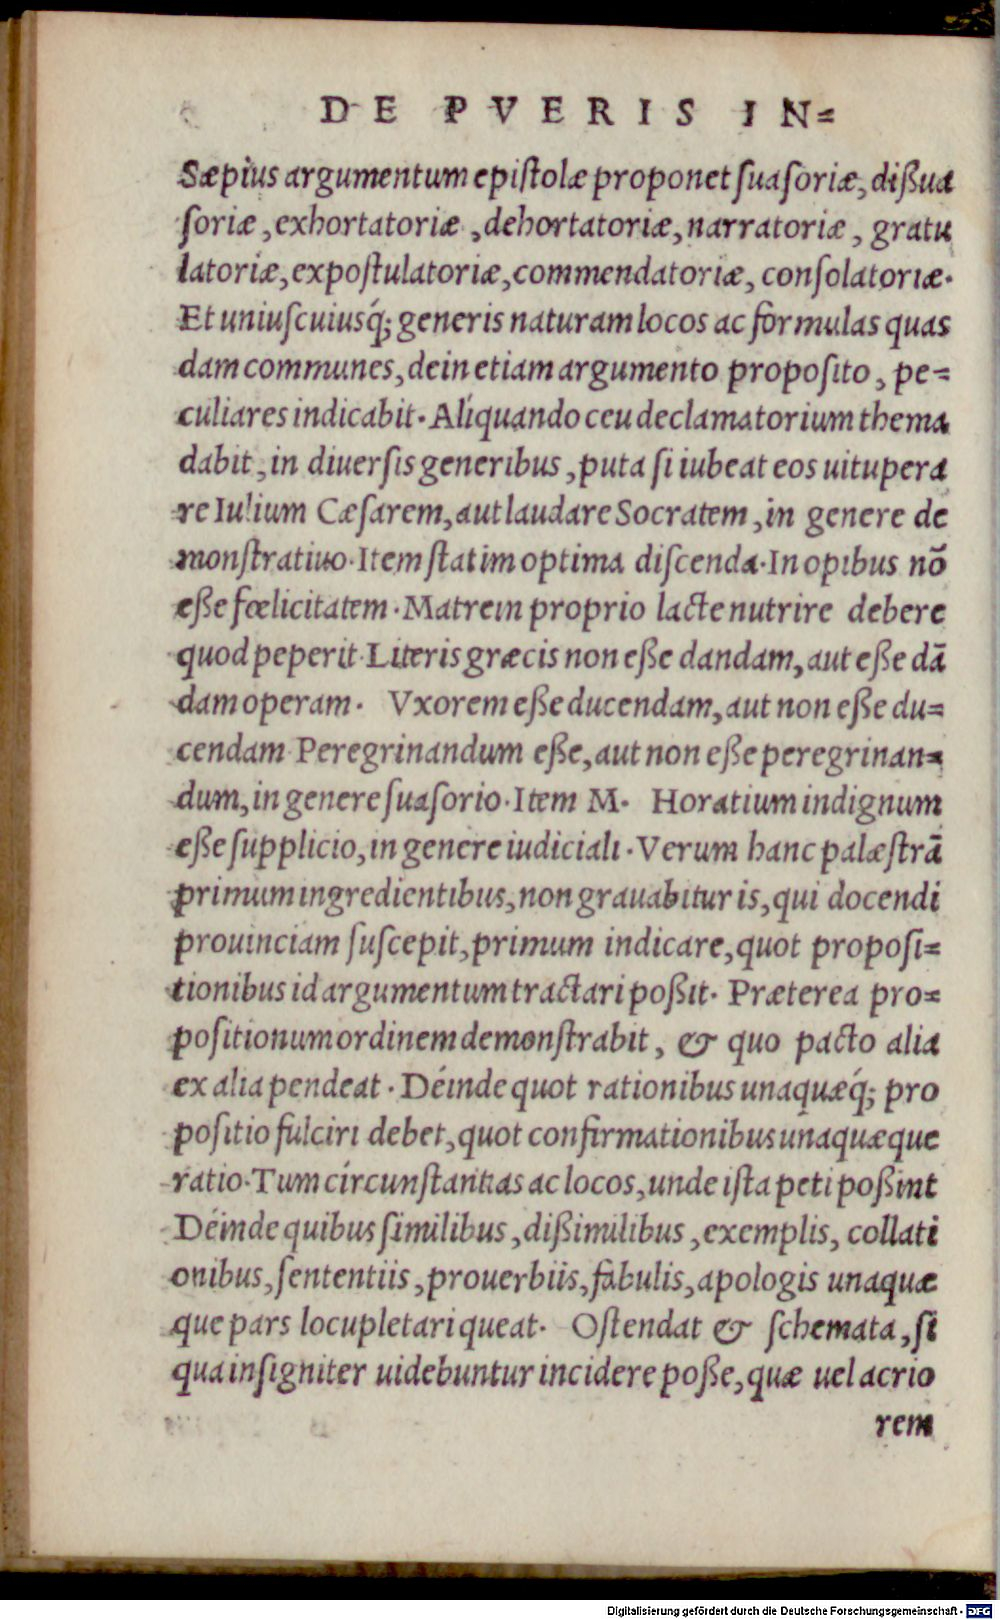 DE PVERIS IN=
Sæpius argumentum epistolæ proponet suasoriæ, dißua
soriæ, exhortatoriæ, dehortatoriæ, narratoriæ, gratu
latoriæ, expostulatoriæ, commendatoriæ, consolatoriæ.
Et uniuscuiusq́; generis naturam locos ac formulas quas
dam communes, dein etiam argumento proposito, pe=
culiares indicabit. Aliquando ceu declamatorium thema
dabit, in diuersis generibus, puta si iubeat eos uitupera
re Iulium Cæsarem, aut laudare Socratem, in genere de
monstratiuo. Item statim optima discenda. In opibus nō
eße fœlicitatem. Matrem proprio lacte nutrire debere
quod peperit. Literis græcis non eße dandam, aut eße dā
dam operam. Vxorem eße ducendam, aut non eße du=
cendam. Peregrinandum eße, aut non eße peregrinan=
dum, in genere suasorio. Item M. Horatium indignum
eße supplicio, in genere iudiciali. Verum hanc palæstrā
primum ingredientibus, non grauabitur is, qui docendi
prouinciam suscepit, primum indicare, quot proposi=
tionibus id argumentum tractari poßit. Præterea pro=
positionum ordinem demonstrabit, & quo pacto alia
ex alia pendeat. Déinde quot rationibus unaquæq́; pro
positio fulciri debet, quot confirmationibus unaquæque
ratio. Tum círcunstantias ac locos, unde ista peti poßint
Déinde quibus similibus, dißimilibus, exemplis, collati
onibus, sententiis, prouerbiis, fabulis, apologis unaquæ
que pars locupletari queat. Ostendat & schemata, si
qua insigniter uidebuntur incidere poße, quæ uel acrio
rem
Digitalisierung gefördert durch die Deutsche Forschungsgemeinschaft - DFG